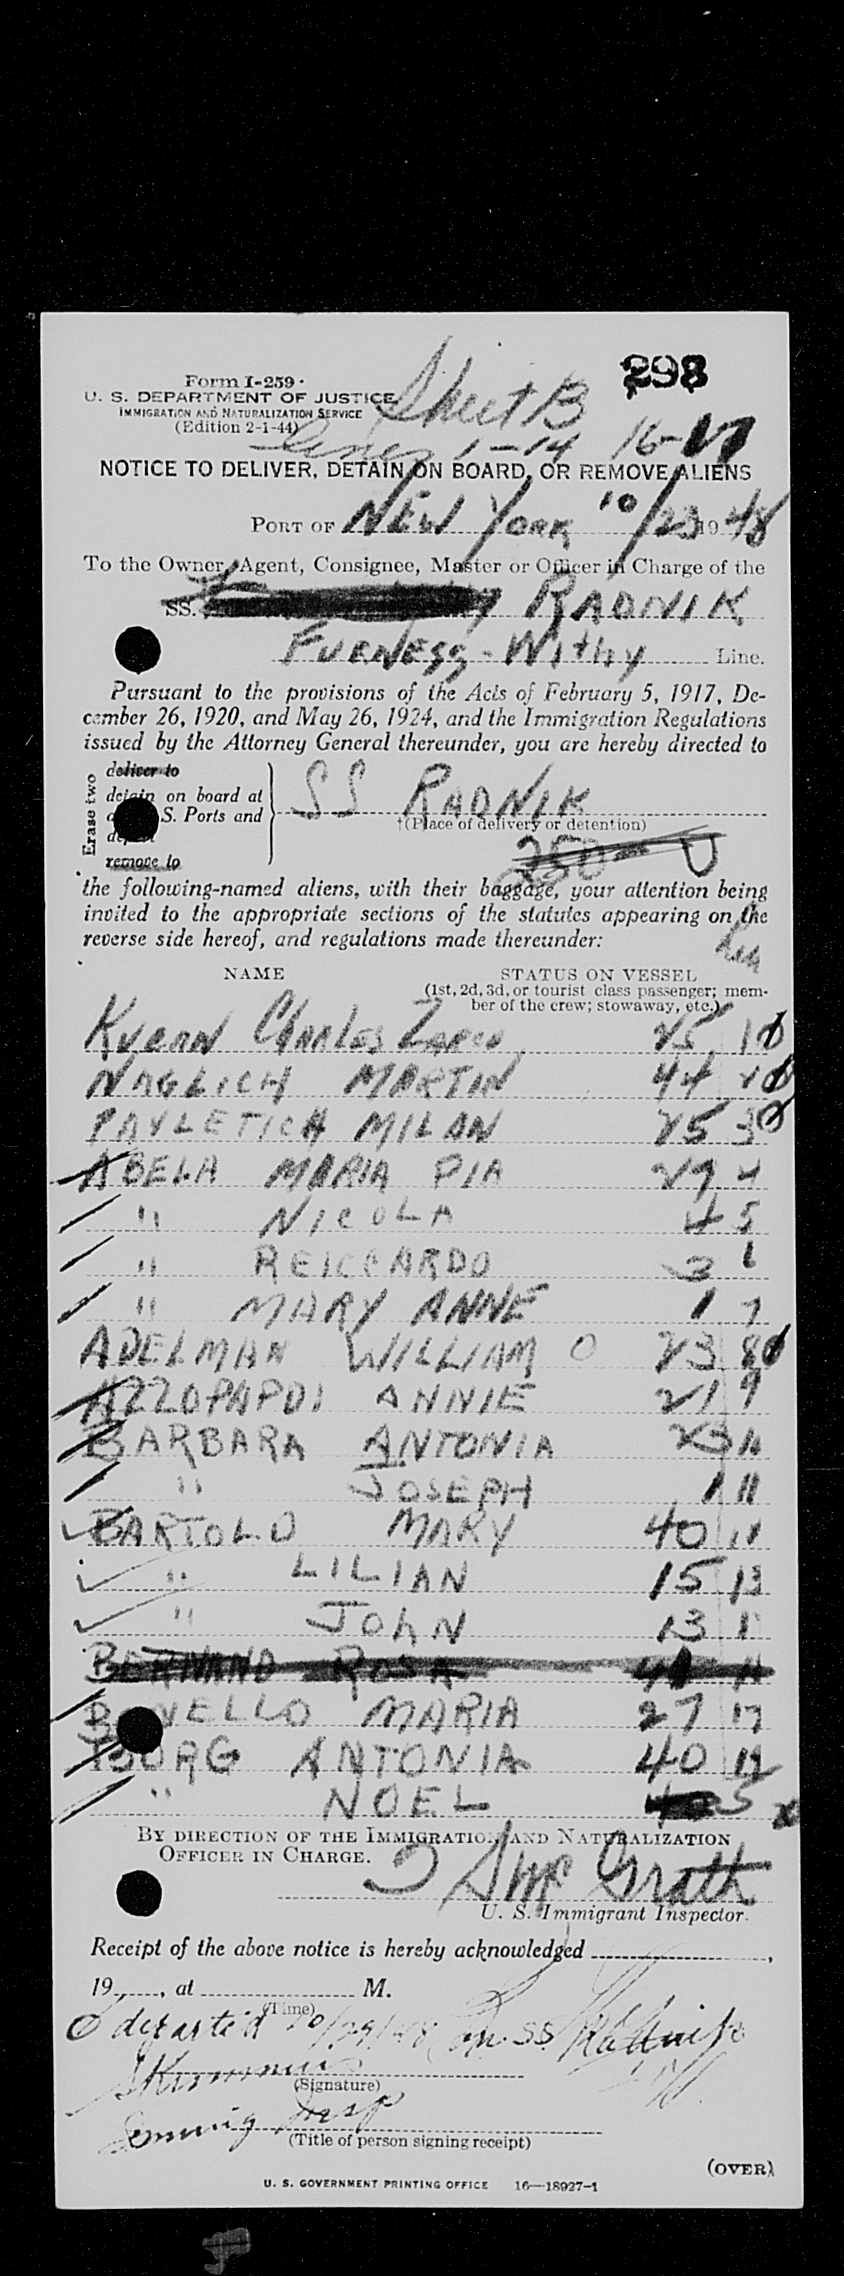 298
Form I-259
U. S. DEPARTMENT OF JUSTICE
IMMIGRATION AND NATURALIZATION SERVICE
(Edition 2-1-44)
Sheet B
Lines 1-14 16-
NOTICE TO DELIVER, DETAIN ON BOARD, OR REMOVE ALIENS
PORT OF NEW YORK 10/23 1948
To the Owner, Agent, Consignee, Master or Officer in Charge of the
SS. RADNIK
FURNESS-Withy Line.
Pursuant to the provisions of the Acts of February 5, 1917, De-
cember 26, 1920, and May 26, 1924, and the Immigration Regulations
issued by the Attorney General thereunder, you are hereby directed to
Erase two
deliver to
detain on board at
S. Ports and
remove to
SS RADNIK
†(Place of delivery or detention)
250
the following-named aliens, with their baggage, your attention being
invited to the appropriate sections of the statutes appearing on the
reverse side hereof, and regulations made thereunder:
NAME
STATUS ON VESSEL
(1st, 2d, 3d, or tourist class passenger; mem-
ber of the crew; stowaway, etc.)
CHARLES 25 1
NAGLICH MARTIN 44 2
PAVLETICH MILAN 25 3
ABELA MARIA PIA 29 4
" NICOLA 4 5
" REICCARDO 3 6
" MARY ANNE 1 7
ADELMAN WILLIAM O 23 8
AZZOPARDI ANNIE 21 9
BARBARA ANTONIA 23
" JOSEPH 1 11
BARTOLO MARY 40
" LILIAN 15 13
" JOHN 13
BERNAND ROSA
MARIA 27 17
BORG ANTONIA 40
" NOEL 5
BY DIRECTION OF THE IMMIGRATION AND NATURALIZATION
OFFICER IN CHARGE.
McGrath
U. S. Immigrant Inspector.
Receipt of the above notice is hereby acknowledged ,
19 , at M.
(Time)
departed 10/29/48 on SS Radnik
(Signature)
Immig Insp
(Title of person signing receipt)
(OVER)
U. S. GOVERNMENT PRINTING OFFICE 16—18927-1